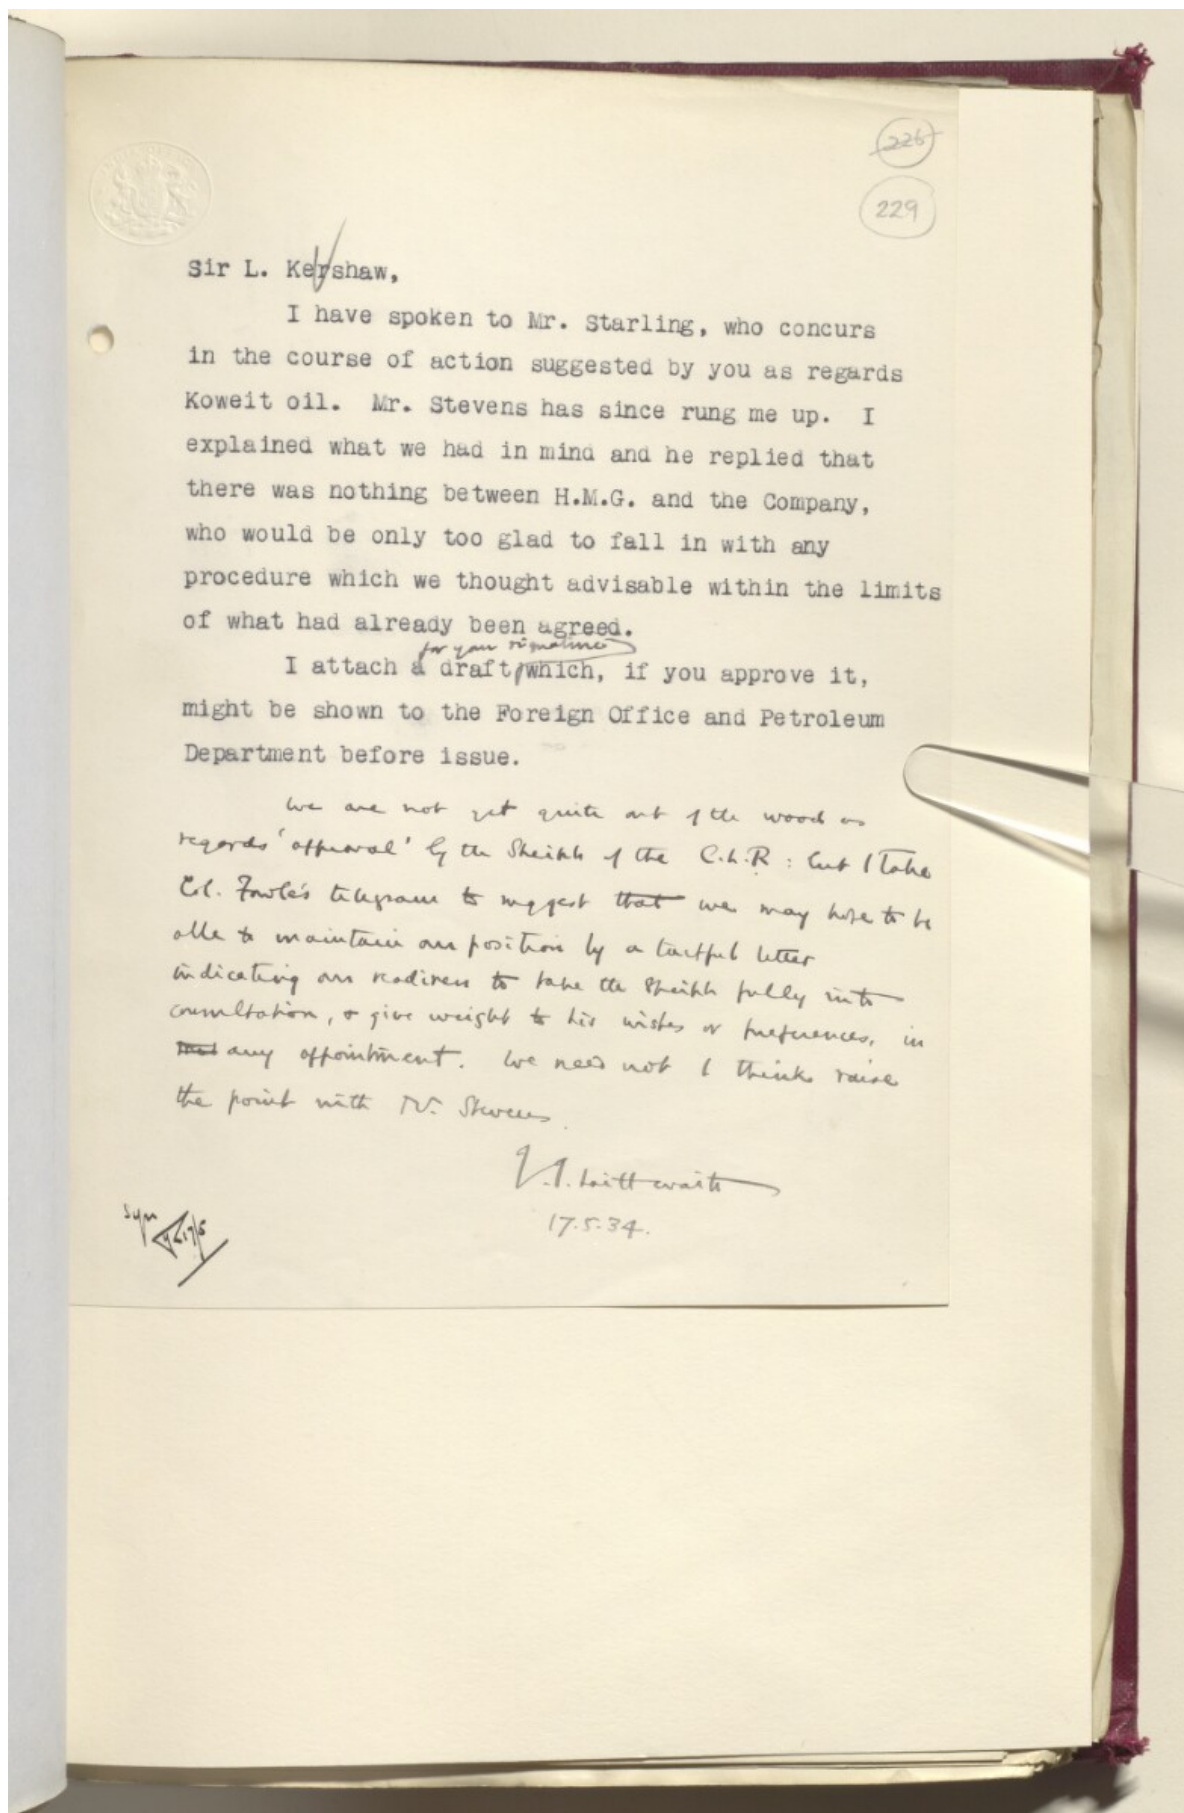 226
229
Sir L. Kershaw,
I have spoken to Mr. Starling, who concurs
in the course of action suggested by you as regards
Koweit oil. Mr. Stevens has since rung me up. I
explained what we had in mind and he replied that
there was nothing between H.M.G. and the Company,
who would be only too glad to fall in with any
procedure which we thought advisable within the limits
of what had already been agreed.
for your signature
I attach a draft, which, if you approve it,
might be shown to the Foreign Office and Petroleum
Department before issue.
We are not yet quite out of the wood as
regards 'approval' by the Sheikh of the C.L.R: but I take
Col. Fowle's telegram to suggest that we may hope to be
able to maintain our position by a tactful letter
indicating our readiness to take the Sheikh fully into
consultation, & give weight to his wishes or preferences, in
any appointment. We need not I think raise
the point with Mr. Stevens.
J.G. Laithwaite
17.5.34.
17/5